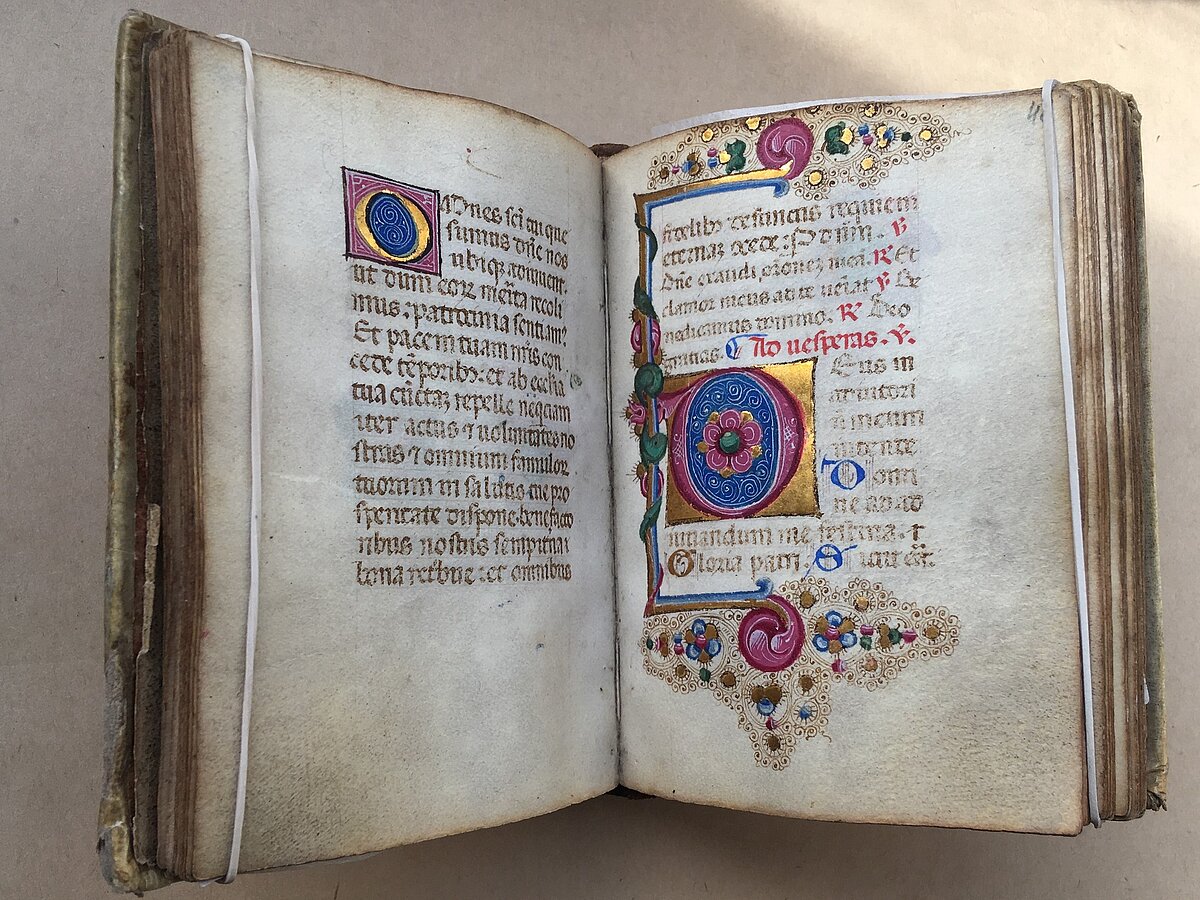 Omnes sci tui que
sumus dne nos
ubiq; adiuuent.
ut dum eoꝝ merita recoli
mus: patrocinia sentiam⁹
Et pacem tuam nris con
cede tēporibꝫ: et ab ecclia
tua cūctaꝫ repelle neqciam
iter actus ⁊ uoluntates no
stras ⁊ omnium famuloꝝ
tuorum in salutis tue pro
speritate dispone. benefacto
ribus nostris sempiterna
bona retribue: et omnibus
fidelibꝫ defunctis requiem
eternaꝫ ꝟ
Dne exaudi orōneꝫ mea. ℟ Et
clamor meus ad te ueniat ꝟ Be
nedicamus domino. ℟ Deo
gratias. Ad uesperas. ꝟ.
Deus in
adiutori
ū meum
intende
Domi
ne ad ad
iuuandum me festina. ⁊
Gloria patri. Sicut erat.